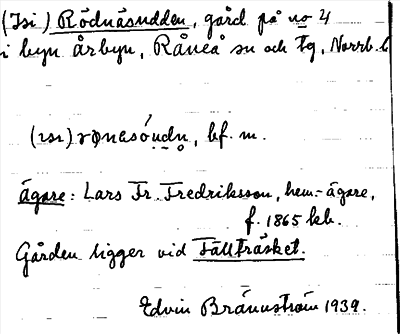 (Isi) Rödnäsudden, gård på no 4
i byn Årbyn, Råneå sn och tg, Norrb. l
(ɪsɪ) rønesúdn, bf. m.
Ägare: Lars Fr. Fredriksson, hem.-ägare,
f. 1865 kb.
Gården ligger vid Fällträsket.
Edvin Brännström 1939.